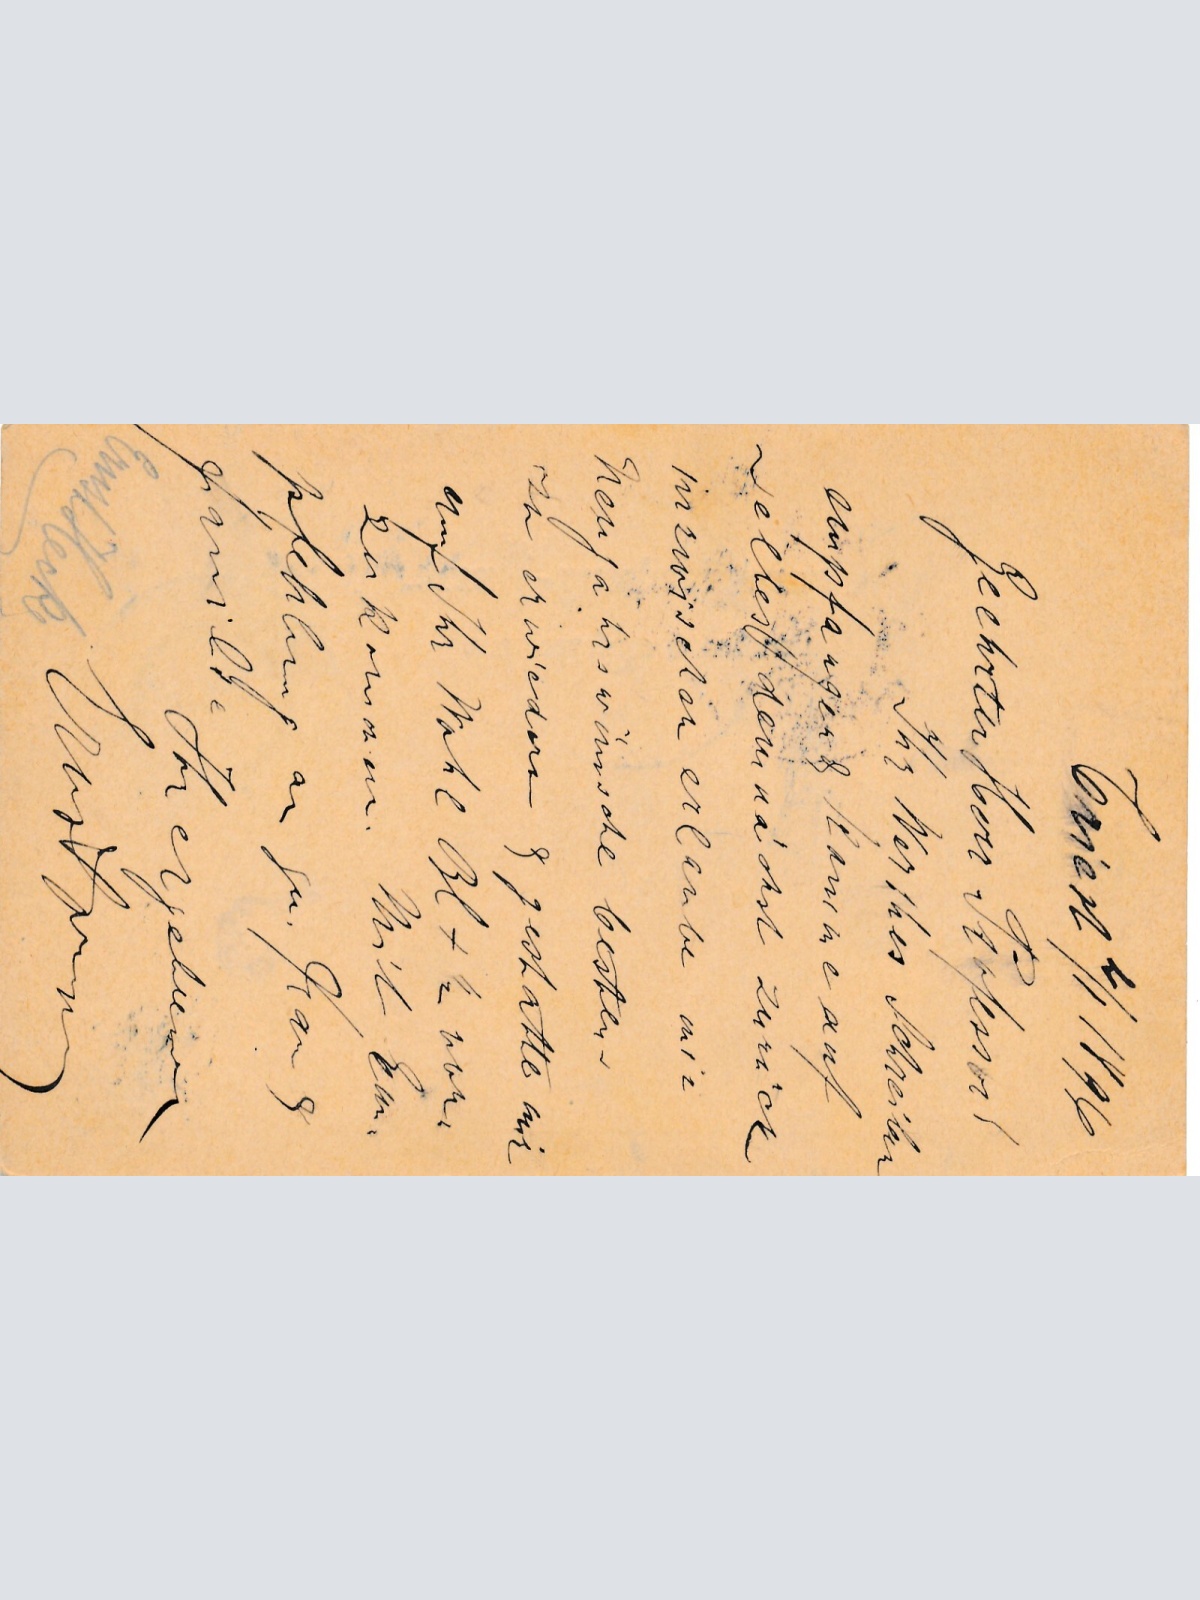 Triest 4/1 1896
Geehrter Herr Professor!
Ihr Werthes Schreiben
empfangen & komme auf
selbes demnächst zurück
inzwischen erlaube mir
Neujahrswünsche bestens
zu erwiedern & gestatte mir
auf Ihr
zukommen. Mit Em-
pfehlung an gn. Frau &
Familie
Ihr ergebener